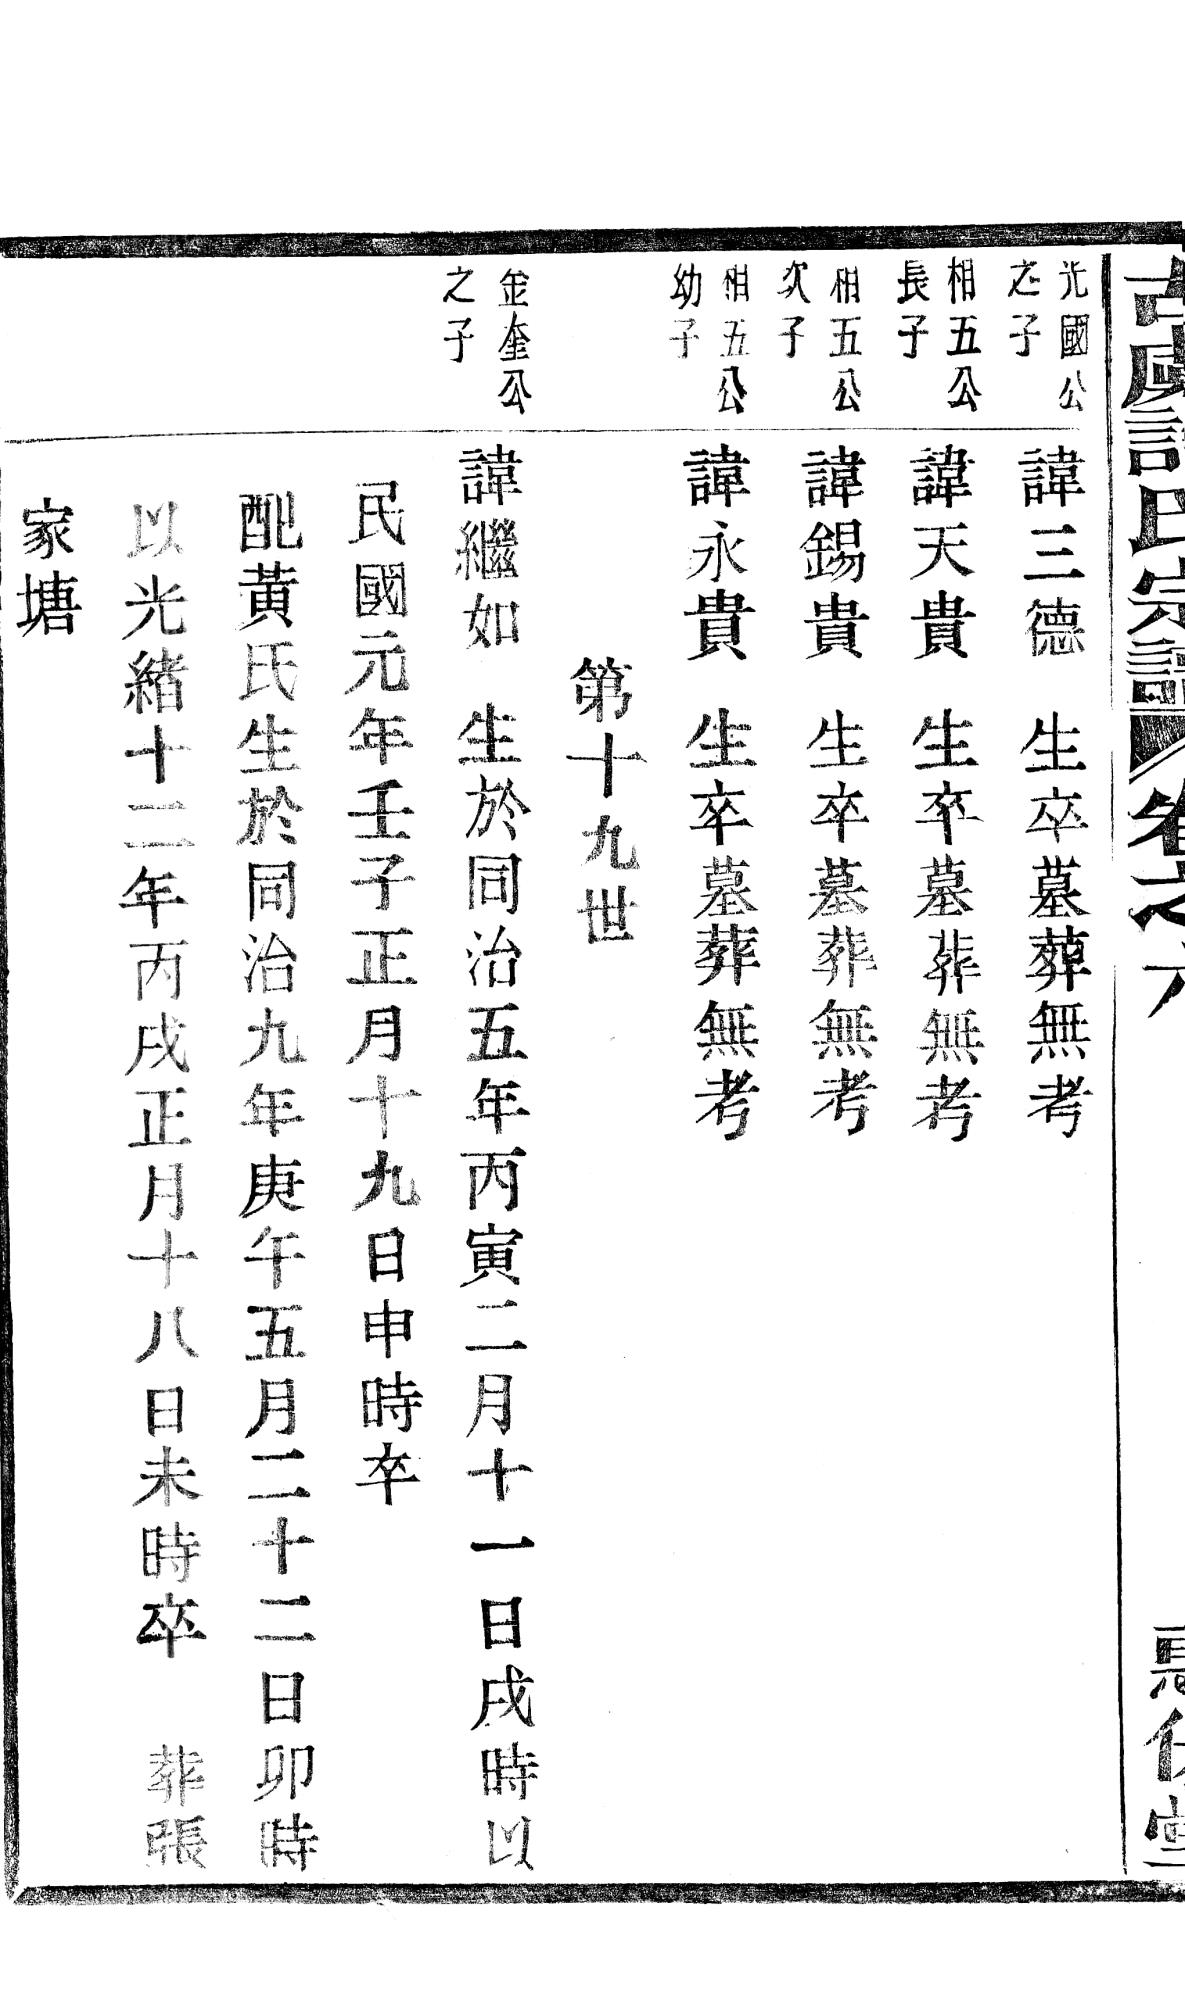 氏宗譜 卷之六
光國公
之子
諱三德 生卒墓葬無考
相五公
長子
諱天貴 生卒墓葬無考
相五公
次子
諱錫貴 生卒墓葬無考
相五公
幼子
諱永貴 生卒墓葬無考
第十九世
金奎公
之子
諱繼如 生於同治五年丙寅二月十一日戌時以
民國元年壬子正月十九日申時卒
配黃氏生於同治九年庚午五月二十二日卯時
以光緒十二年丙戌正月十八日未時卒 葬張
家塘